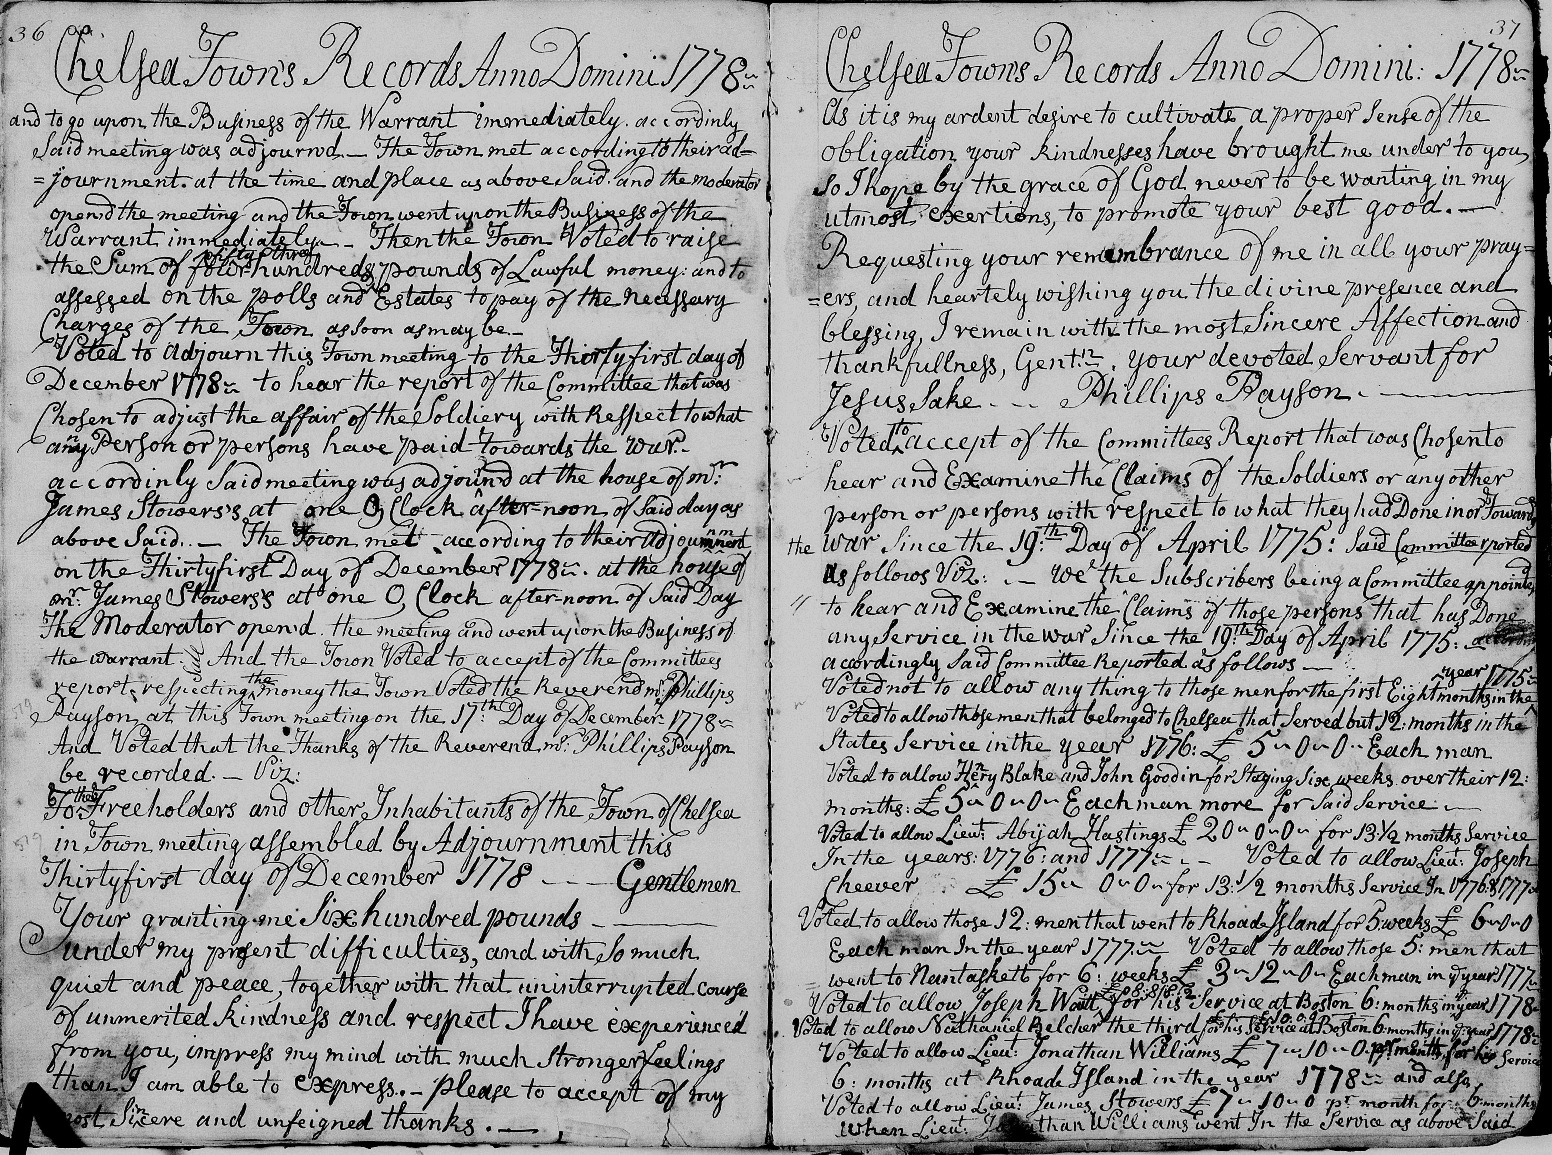 36
Chelsea Town's Records Anno Domini 1778
and to go upon the Business of the Warrant immediately. accordinly
Said meeting was adjournd.— The Town met according to their ad-
=journment. at the time and place as above Said: and the moderator
opend the meeting and the Town went upon the Business of the
Warrant immediately — Then the Town Voted to raise
fifty three
the Sum of four hundreds pounds of Lawful money: and to
assessed on the polls and Estates to pay of the necessary
Charges of the Town as soon as may be.—
Voted to adjourn this Town meeting to the Thirty first day of
December 1778 to hear the report of the Committee that was
Chosen to adjust the affair of the Soldiery with Respect to what
any Person or persons have paid towards the war.-
accordinly Said meeting was adjournd at the house of mr:
James Stowers's at one O, Clock after-noon of Said day as
above Said.. — The Town met according to their Adjournment
on the Thirty first Day of December 1778. at the house of
mr: James Stowers's at one O, Clock after-noon of Said Day
The Moderator opend. the meeting and went upon the Business of
the warrant: And the Town Voted to accept of the Committees
report. respecting the money the Town Voted the Reverend mr Phillips
Payson, at this Town meeting on the 17:th Day of December 1778
And Voted that the Thanks of the Reverend mr: Phillips Payson
be recorded. — Viz:
To the Freeholders and other Inhabitants of the Town of Chelsea
in Town meeting assembled by Adjournment this
Thirty first day of December 1778 — — Gentlemen
Your granting me Six hundred pounds —
under my present difficulties, and with So much
quiet and peace, together with that uninterrupted course
of unmerited kindness and respect I have experienced
from you, impress my mind with much stronger feelings
than I am able to express. — please to accept of my
most Sincere and unfeigned thanks. —
37
Chelsea Town's Records Anno Domini: 1778
As it is my ardent desire to cultivate a proper Sense of the
obligation your kindnesses have brought me under to you,
So I hope by the grace of God never to be wanting in my
utmost exertions, to promote your best good. —
Requesting your remembrance of me in all your pray=
=ers, and heartely wishing you the divine presence and
blessing, I remain with the most Sincere Affection and
thankfullness, Gent:n. your devoted Servant for
Jesus Sake - - - Phillips Payson. —
Voted to accept of the Committees Report that was Chosen to
hear and Examine the Claims of the Soldiers or any other
person or persons with respect to what they had Done in or Towards
the war Since the 19:th Day of April 1775: Said Committee rported
As follows Viz: — We the Subscribers being a Committee appointed
to hear and Examine the Claims of those persons that has Done
any Service in the war Since the 19:th Day of April 1775:
accordingly Said Committee Reported as follows —
year 1775
Voted not to allow any thing to those men for the first Eight months in the
Voted to allow those men that belonged to Chelsea that Served but 12: months in the
States Service in the year 1776: £ 5 " 0 " 0 " Each man
Voted to allow Henry Blake and John Goodin for Staying Six weeks over their 12:
months: £ 5 " 0 " 0 " Each man more for Said Service —
Voted to allow Lieut: Abijah Hastings £ 20 " 0 " 0 " for 13:1/2 months Service
In the years: 1776: and 1777 — Voted to allow Lieut: Joseph
Cheever £ 15 " 0 " 0 " for 13:1/2 months Service In 1776 & 1777
Voted to allow those 12: men that went to Rhoade Island for 5 weeks £ 6 " 0 " 0
Each man In the year 1777 Voted to allow those 5: men that
went to Nantaskett for 6: weeks £ 3 " 12 " 0 " Each man in ye year 1777
Voted to allow Joseph Watt for his Service at Boston 6: months in ye year 1778
Voted to allow Nathaniel Belcher the third for his Service at Boston 6 months in ye year 1778
Voted to allow Lieut: Jonathan Williams £ 7 " 10 " 0 pr month for his Service
6: months at Rhoade Island in the year 1778 and also
Voted to allow Lieut: James Stowers £ 7 " 10 " 0 pr month for 6: months
When Lieut: Jonathan Williams went In the Service as above Said